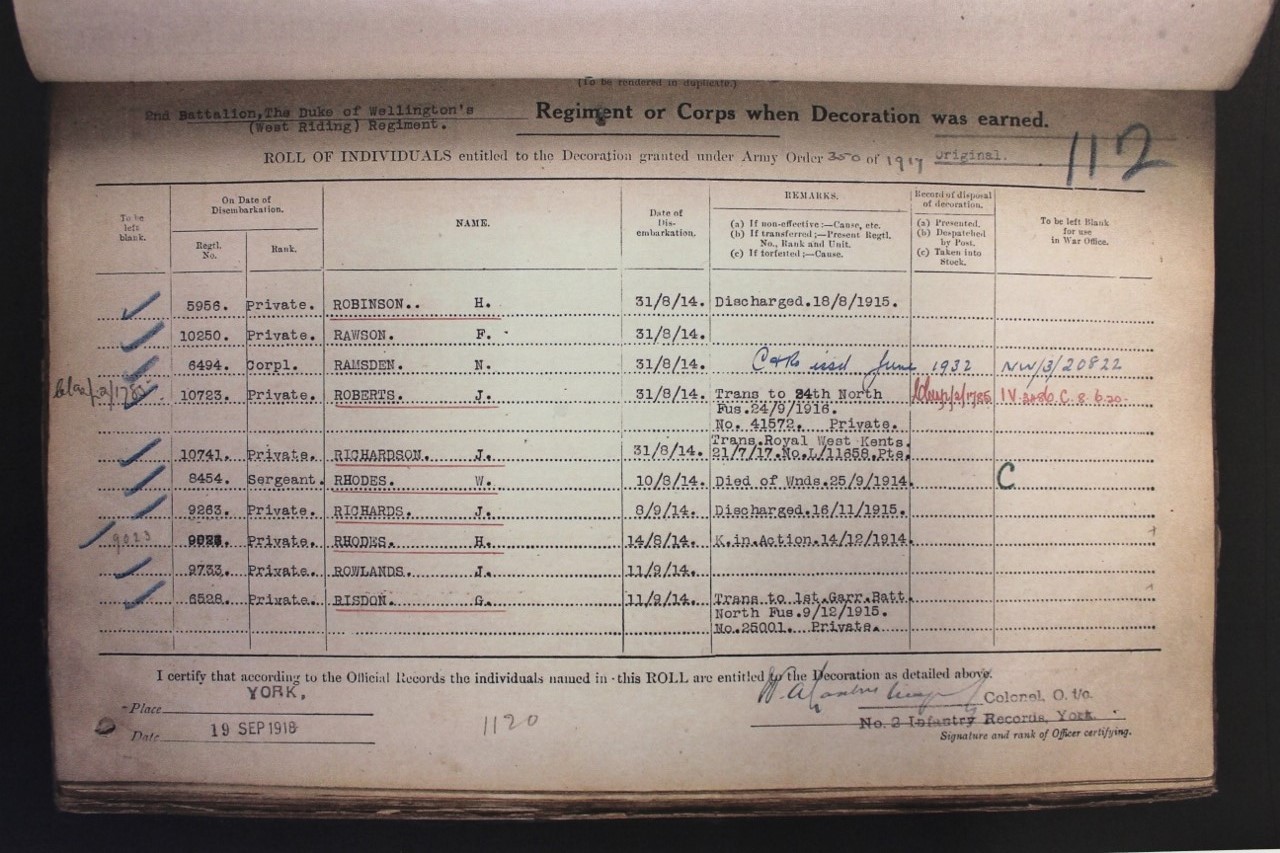 (To be rendered in duplicate.)
2nd Battalion,The Duke of Wellington's
(West Riding) Regiment.
Regiment or Corps when Decoration was earned.
112
ROLL OF INDIVIDUALS entitled to the Decoration granted under Army Order 350 of 1917 Original.
To be left blank.
On Date of Disembarkation.
Regtl. No.
Rank.
NAME.
Date of Dis- embarkation.
REMARKS.
(a) If non-effective:—Cause, etc.
(b) If transferred;—Present Regtl. No., Rank and Unit.
(c) If forfeited;—Cause.
Record of disposal of decoration.
(a) Presented.
(b) Despatched by Post.
(c) Taken into Stock.
To be left Blank for use in War Office.
5956. Private. ROBINSON.. H. 31/8/14. Discharged.18/8/1915.
10250. Private. RAWSON. F. 31/8/14.
6494. Corpl. RAMSDEN. N. 31/8/14. C&R issd June 1932 NW/3/20822
10723. Private. ROBERTS. J. 31/8/14. Trans to 24th North IV C. 8.6.20.
Fus.24/9/1916.
No. 41572. Private.
10741. Private. RICHARDSON. J. 31/8/14. Trans.Royal West Kents.
21/7/17.No.L/11658.Pte.
8454. Sergeant. RHODES. W. 10/8/14. Died of Wnds.25/9/1914. C
9263. Private. RICHARDS. J. 8/9/14. Discharged.16/11/1915.
9023 9023. Private. RHODES. H. 14/8/14. K.in.Action.14/12/1914.
9733. Private. ROWLANDS. J. 11/9/14.
6528. Private. RISDON. G. 11/9/14. Trans to 1st.Garr.Batt.
North Fus.9/12/1915.
No.25001. Private.
I certify that according to the Official Records the individuals named in this ROLL are entitled to the Decoration as detailed above.
Place YORK.
Date 19 SEP 1918
1120
Colonel, O. i/c.
No. 2 Infantry Records, York.
Signature and rank of Officer certifying.